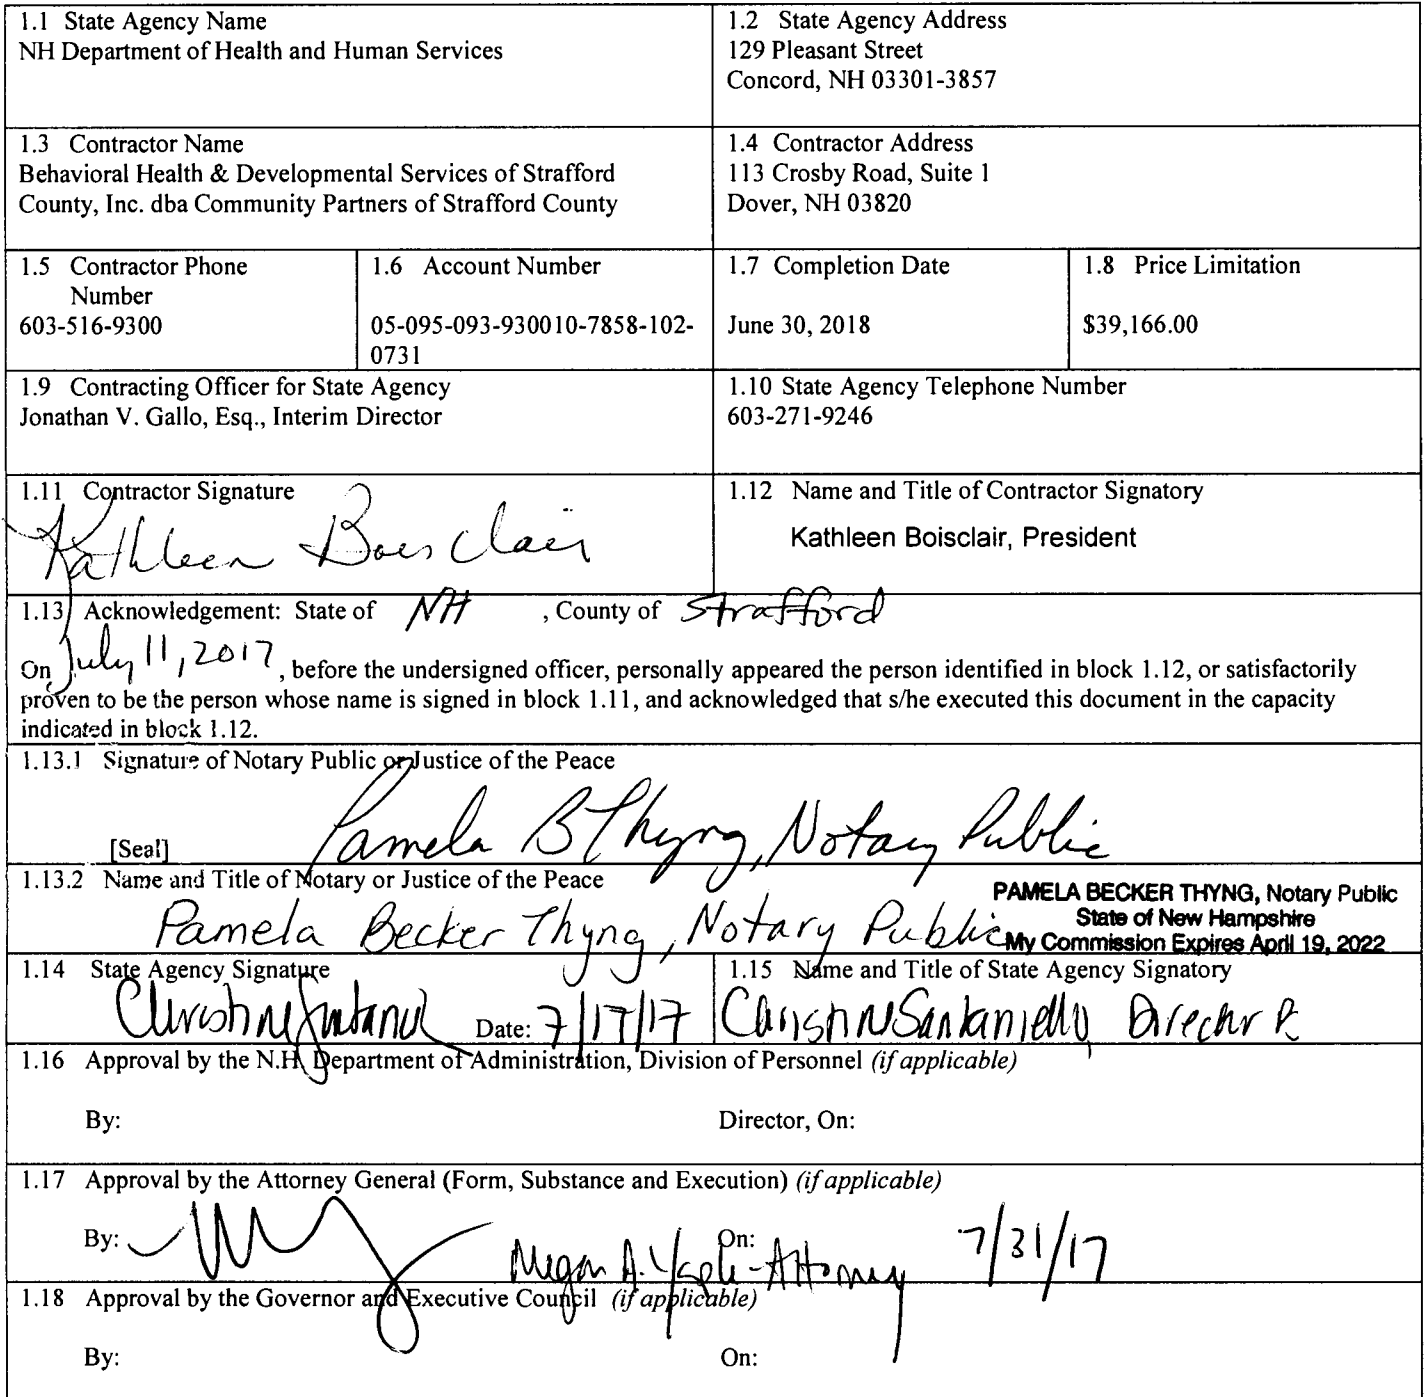 1.1 State Agency Name
NH Department of Health and Human Services
1.2 State Agency Address
129 Pleasant Street
Concord, NH 03301-3857
1.3 Contractor Name
Behavioral Health & Developmental Services of Strafford
County, Inc. dba Community Partners of Strafford County
1.4 Contractor Address
113 Crosby Road, Suite 1
Dover, NH 03820
1.5 Contractor Phone
Number
603-516-9300
1.6 Account Number
05-095-093-930010-7858-102-
0731
1.7 Completion Date
June 30, 2018
1.8 Price Limitation
$39,166.00
1.9 Contracting Officer for State Agency
Jonathan V. Gallo, Esq., Interim Director
1.10 State Agency Telephone Number
603-271-9246
1.11 Contractor Signature
Kathleen Boisclair
1.12 Name and Title of Contractor Signatory
Kathleen Boisclair, President
1.13 Acknowledgement: State of NH , County of Strafford
On July 11, 2017, before the undersigned officer, personally appeared the person identified in block 1.12, or satisfactorily
proven to be the person whose name is signed in block 1.11, and acknowledged that s/he executed this document in the capacity
indicated in block 1.12.
1.13.1 Signature of Notary Public or Justice of the Peace
[Seal] Pamela B Thyng, Notary Public
1.13.2 Name and Title of Notary or Justice of the Peace
Pamela Becker Thyng, Notary Public
PAMELA BECKER THYNG, Notary Public
State of New Hampshire
My Commission Expires April 19, 2022
1.14 State Agency Signature
Christine Date: 7/17/17
1.15 Name and Title of State Agency Signatory
Christine Santaniello, Director
1.16 Approval by the N.H. Department of Administration, Division of Personnel (if applicable)
By: Director, On:
1.17 Approval by the Attorney General (Form, Substance and Execution) (if applicable)
By: On: 7/31/17
Megan A. Yaple - Attorney
1.18 Approval by the Governor and Executive Council (if applicable)
By: On: